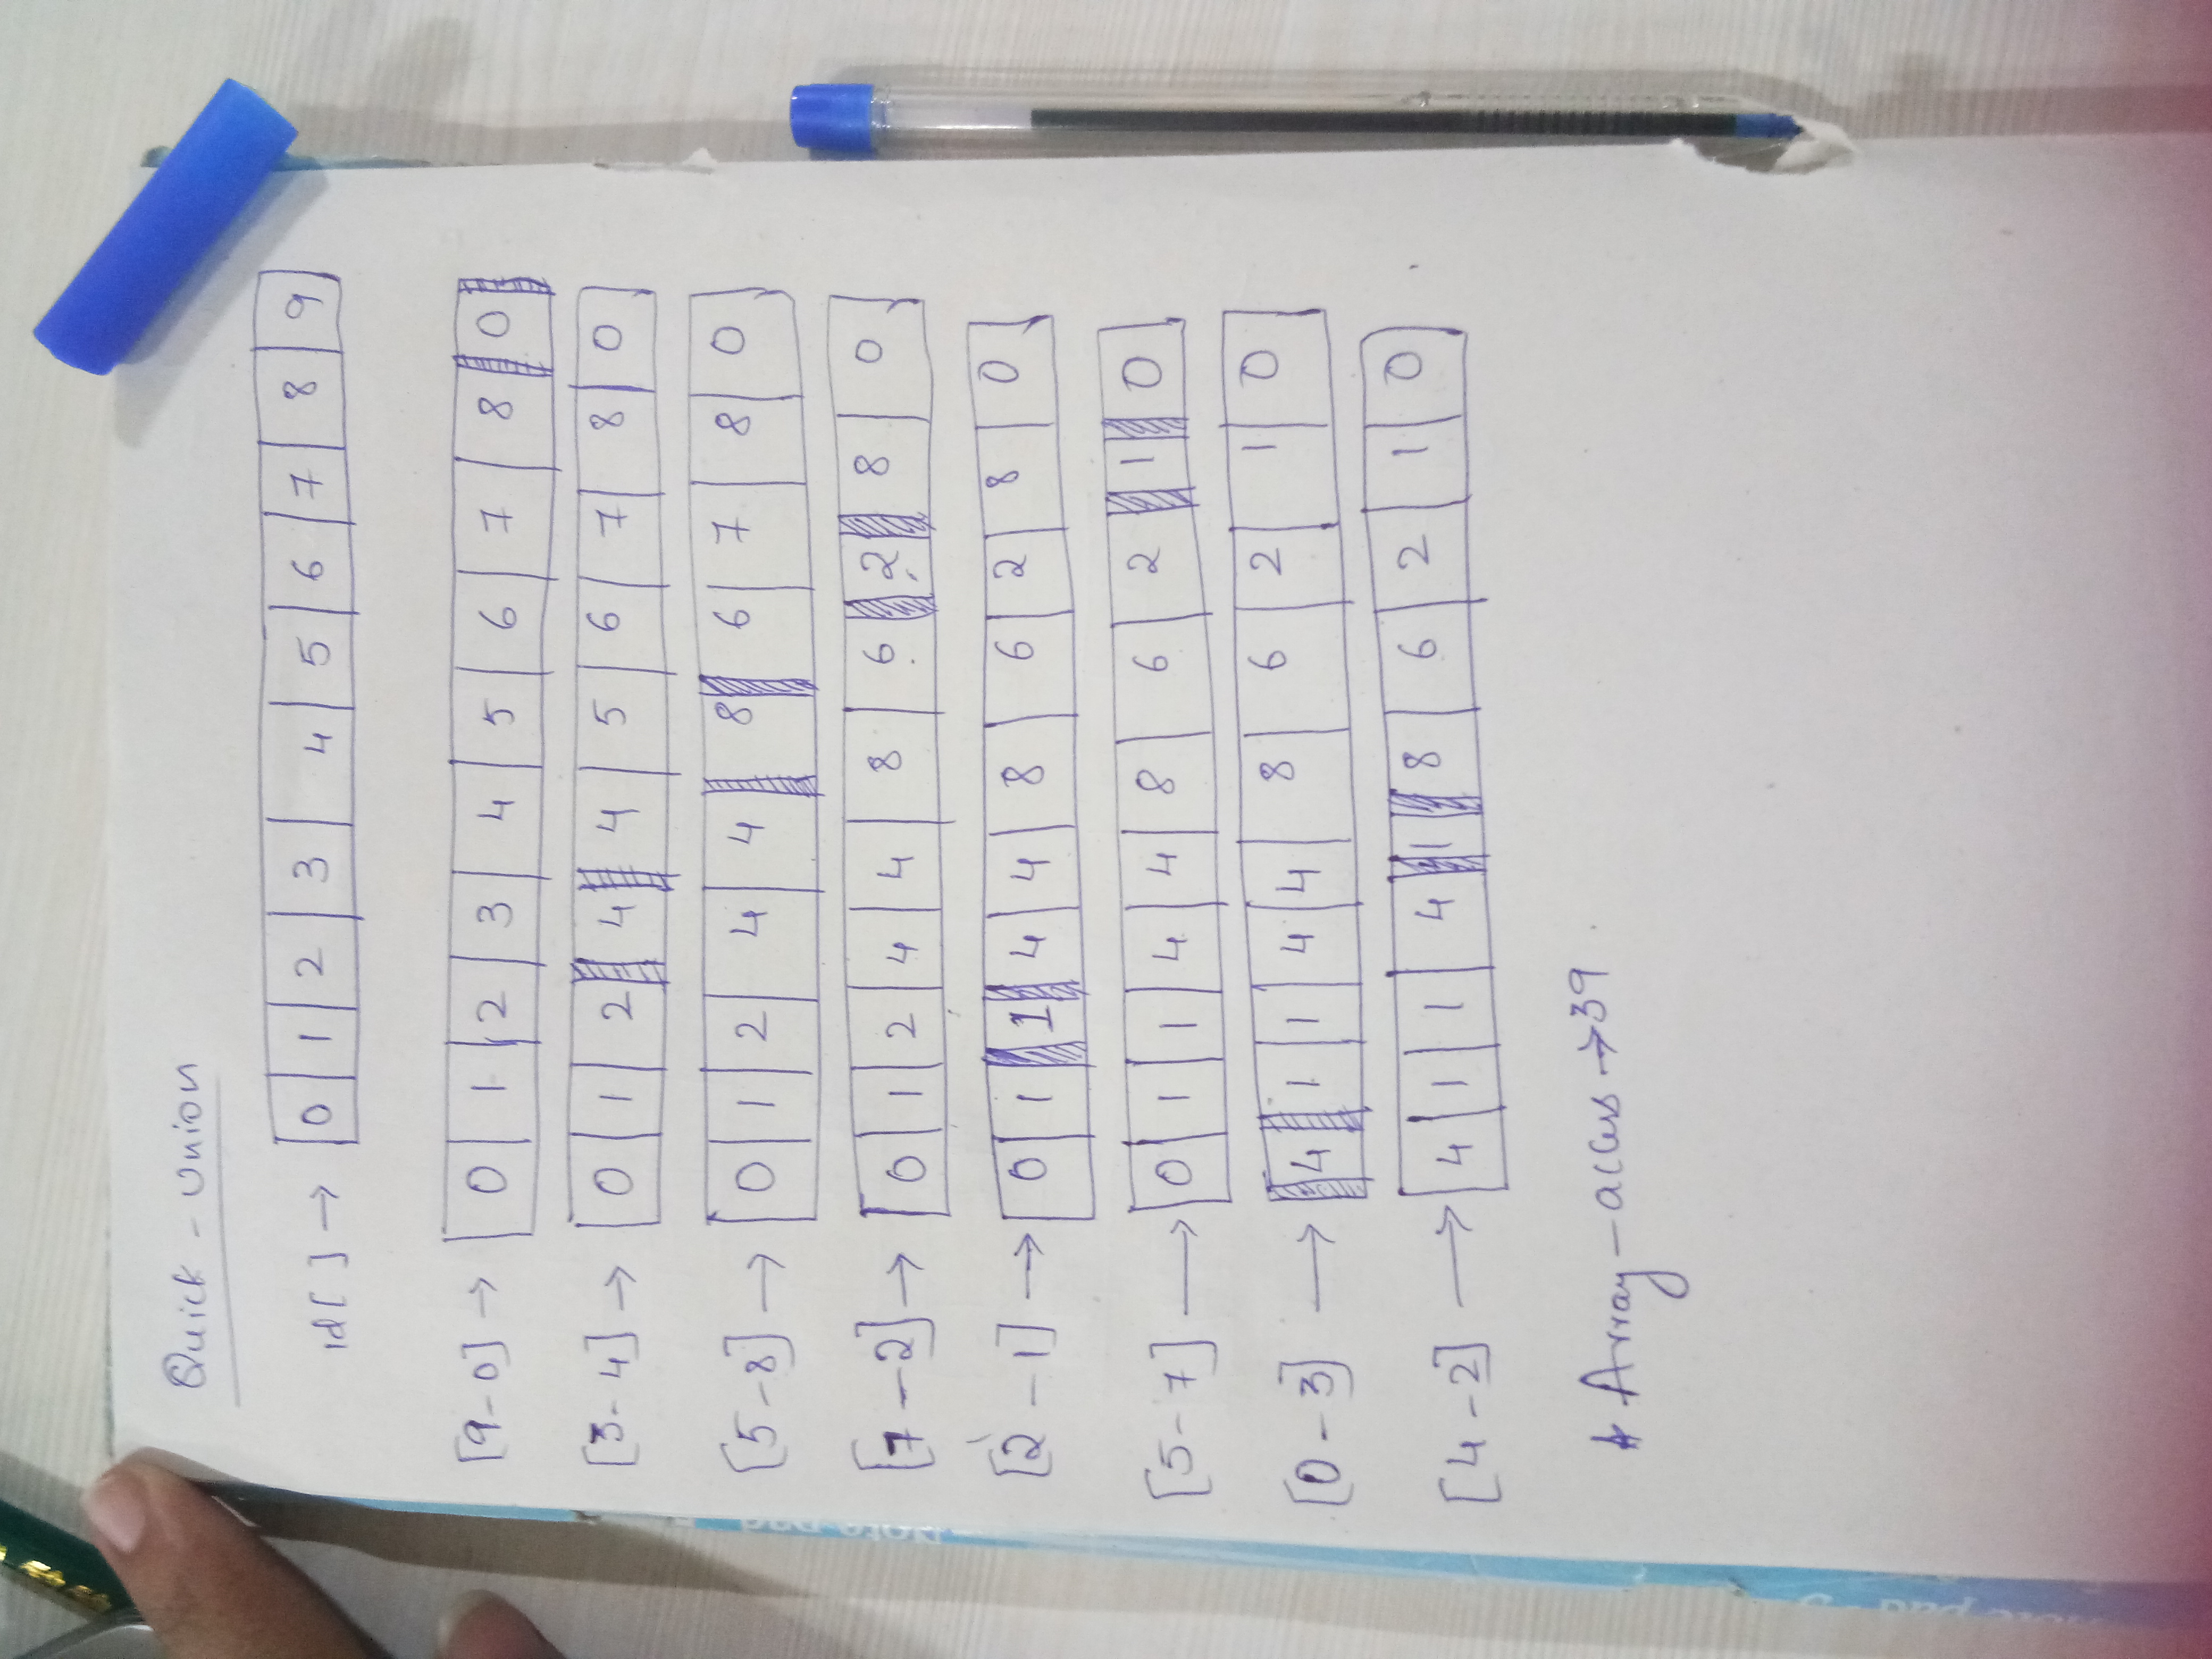 Quick - Union
id[ ] → 0 1 2 3 4 5 6 7 8 9
[9-0] → 0 1 2 3 4 5 6 7 8 0
[3-4] → 0 1 2 4 4 5 6 7 8 0
[5-8] → 0 1 2 4 4 8 6 7 8 0
[7-2] → 0 1 2 4 4 8 6 2 8 0
[2-1] → 0 1 1 4 4 8 6 2 8 0
[5-7] → 0 1 1 4 4 8 6 2 1 0
[0-3] → 4 1 1 4 4 8 6 2 1 0
[4-2] → 4 1 1 4 1 8 6 2 1 0
* Array-acces → 39
Note pad
Note pad